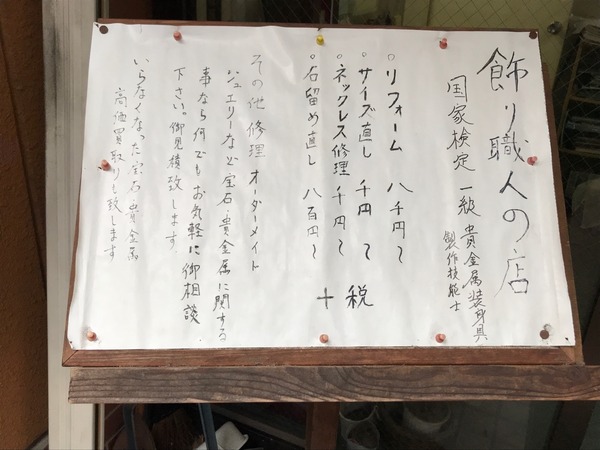 飾り職人の店
国家検定 一級 貴金属装身具
製作技能士
○リフォーム 八千円〜
○サイズ直し 千円〜
○ネックレス修理 千円〜
○石留め直し 八百円〜
＋税
その他 修理 オーダーメイト
ジュエリーなど宝石・貴金属に関する
事なら何でもお気軽に御相談
下さい。御見積致します。
いらなくなった宝石・貴金属
高価買取りも致します